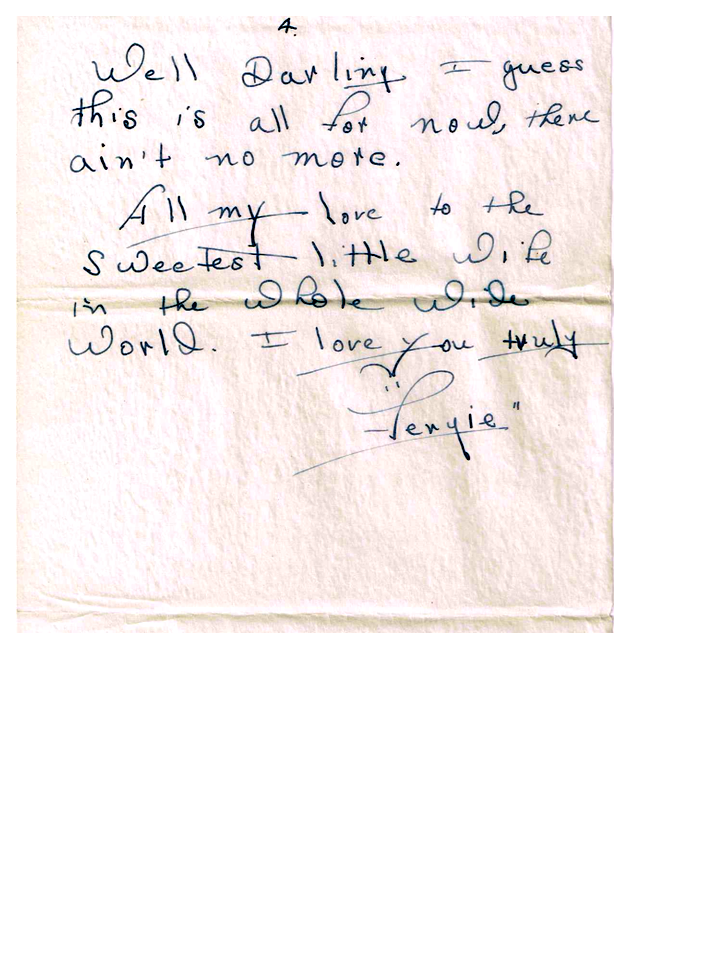 4.
Well Darling I guess
this is all for now, there
ain't no more.
All my love to the
sweetest little wife
in the whole wide
World. I love you truly
"